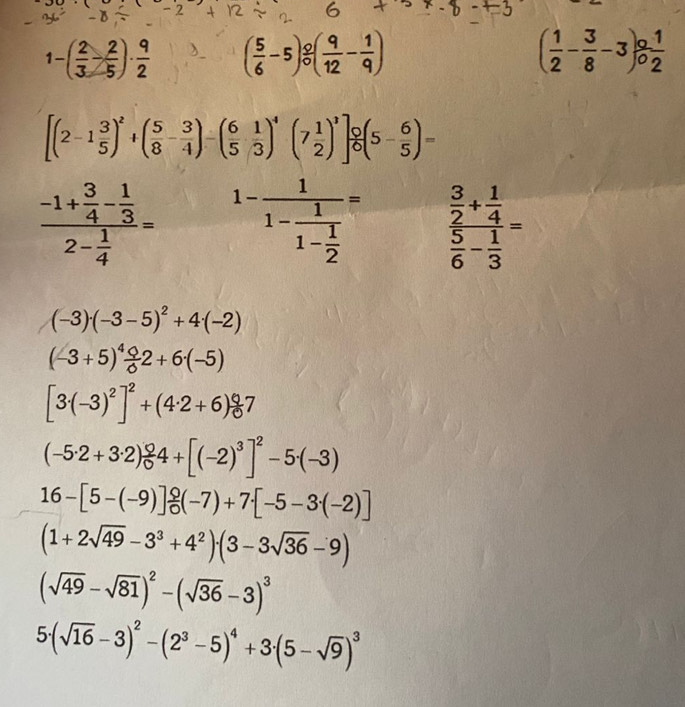 -36÷ -8÷ -2 + 12 ÷ 2 6
1-(2/3-2/5)·9/2 (5/6-5)÷(9/12-1/9) (1/2-3/8-3)÷1/2
[(2-1 3/5)²+(5/8-3/4)-(6/5 1/3)⁴ (7 1/2)³]÷(5-6/5)=
(-1+3/4-1/3)/(2-1/4)= 1-1/(1-1/(1-1/2))= (3/2+1/4)/(5/6-1/3)=
(-3)·(-3-5)²+4·(-2)
(-3+5)⁴÷2+6·(-5)
[3·(-3)²]²+(4·2+6)÷7
(-5·2+3·2)÷4+[(-2)³]²-5·(-3)
16-[5-(-9)]÷(-7)+7·[-5-3·(-2)]
(1+2√49-3³+4²)·(3-3√36-9)
(√49-√81)²-(√36-3)³
5·(√16-3)²-(2³-5)⁴+3·(5-√9)³